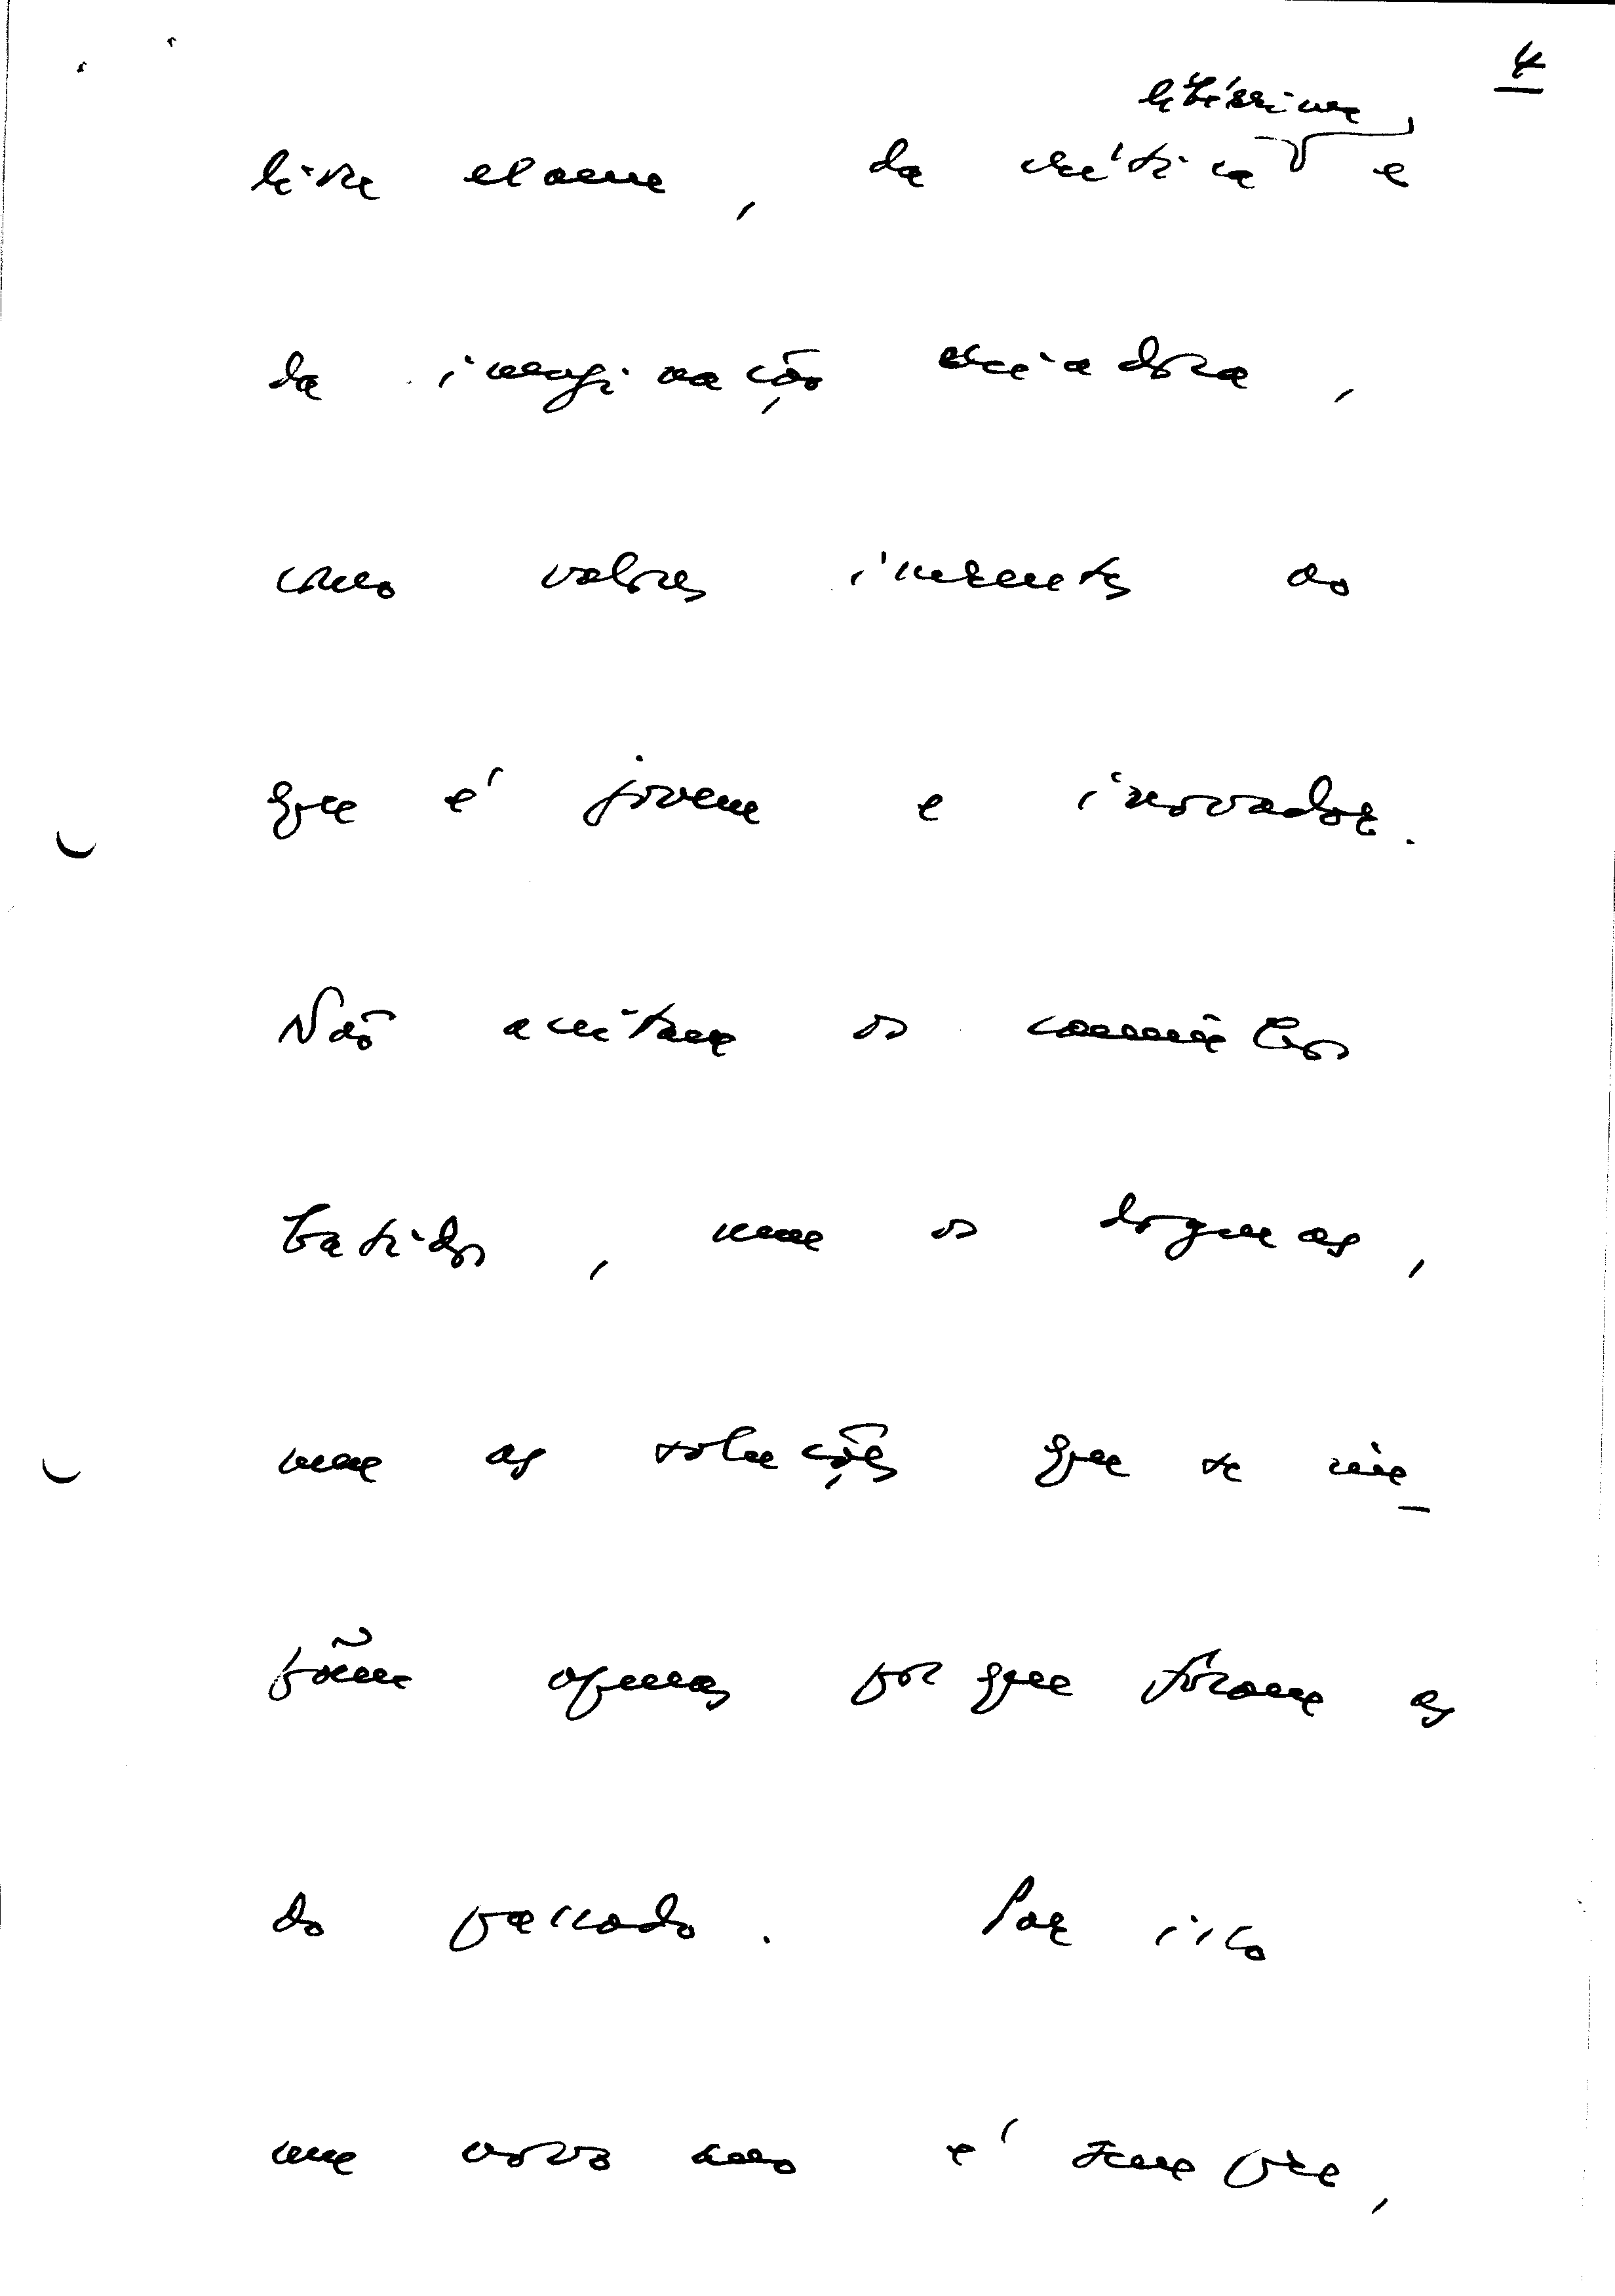 4
libérrima,
livre exame, da crítica e
da imaginação criadora,
como valores inerentes ao
que é jovem e inovador.
Não aceitam os caminhos
batidos, nem os dogmas,
nem as soluções que se im-
põem apenas porque foram as
do passado. Por isso
um novo é sempre,